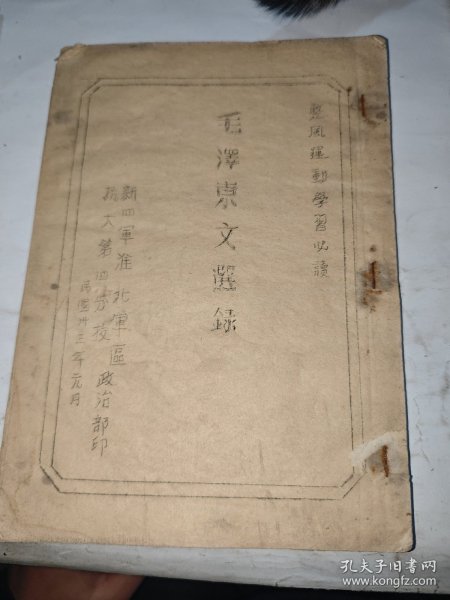 整風運動學習必讀
毛澤東文選錄
新四軍淮北軍區政治部印
抗大第四分校
民國卅三年元月
孔夫子旧书网
www.kongfz.com